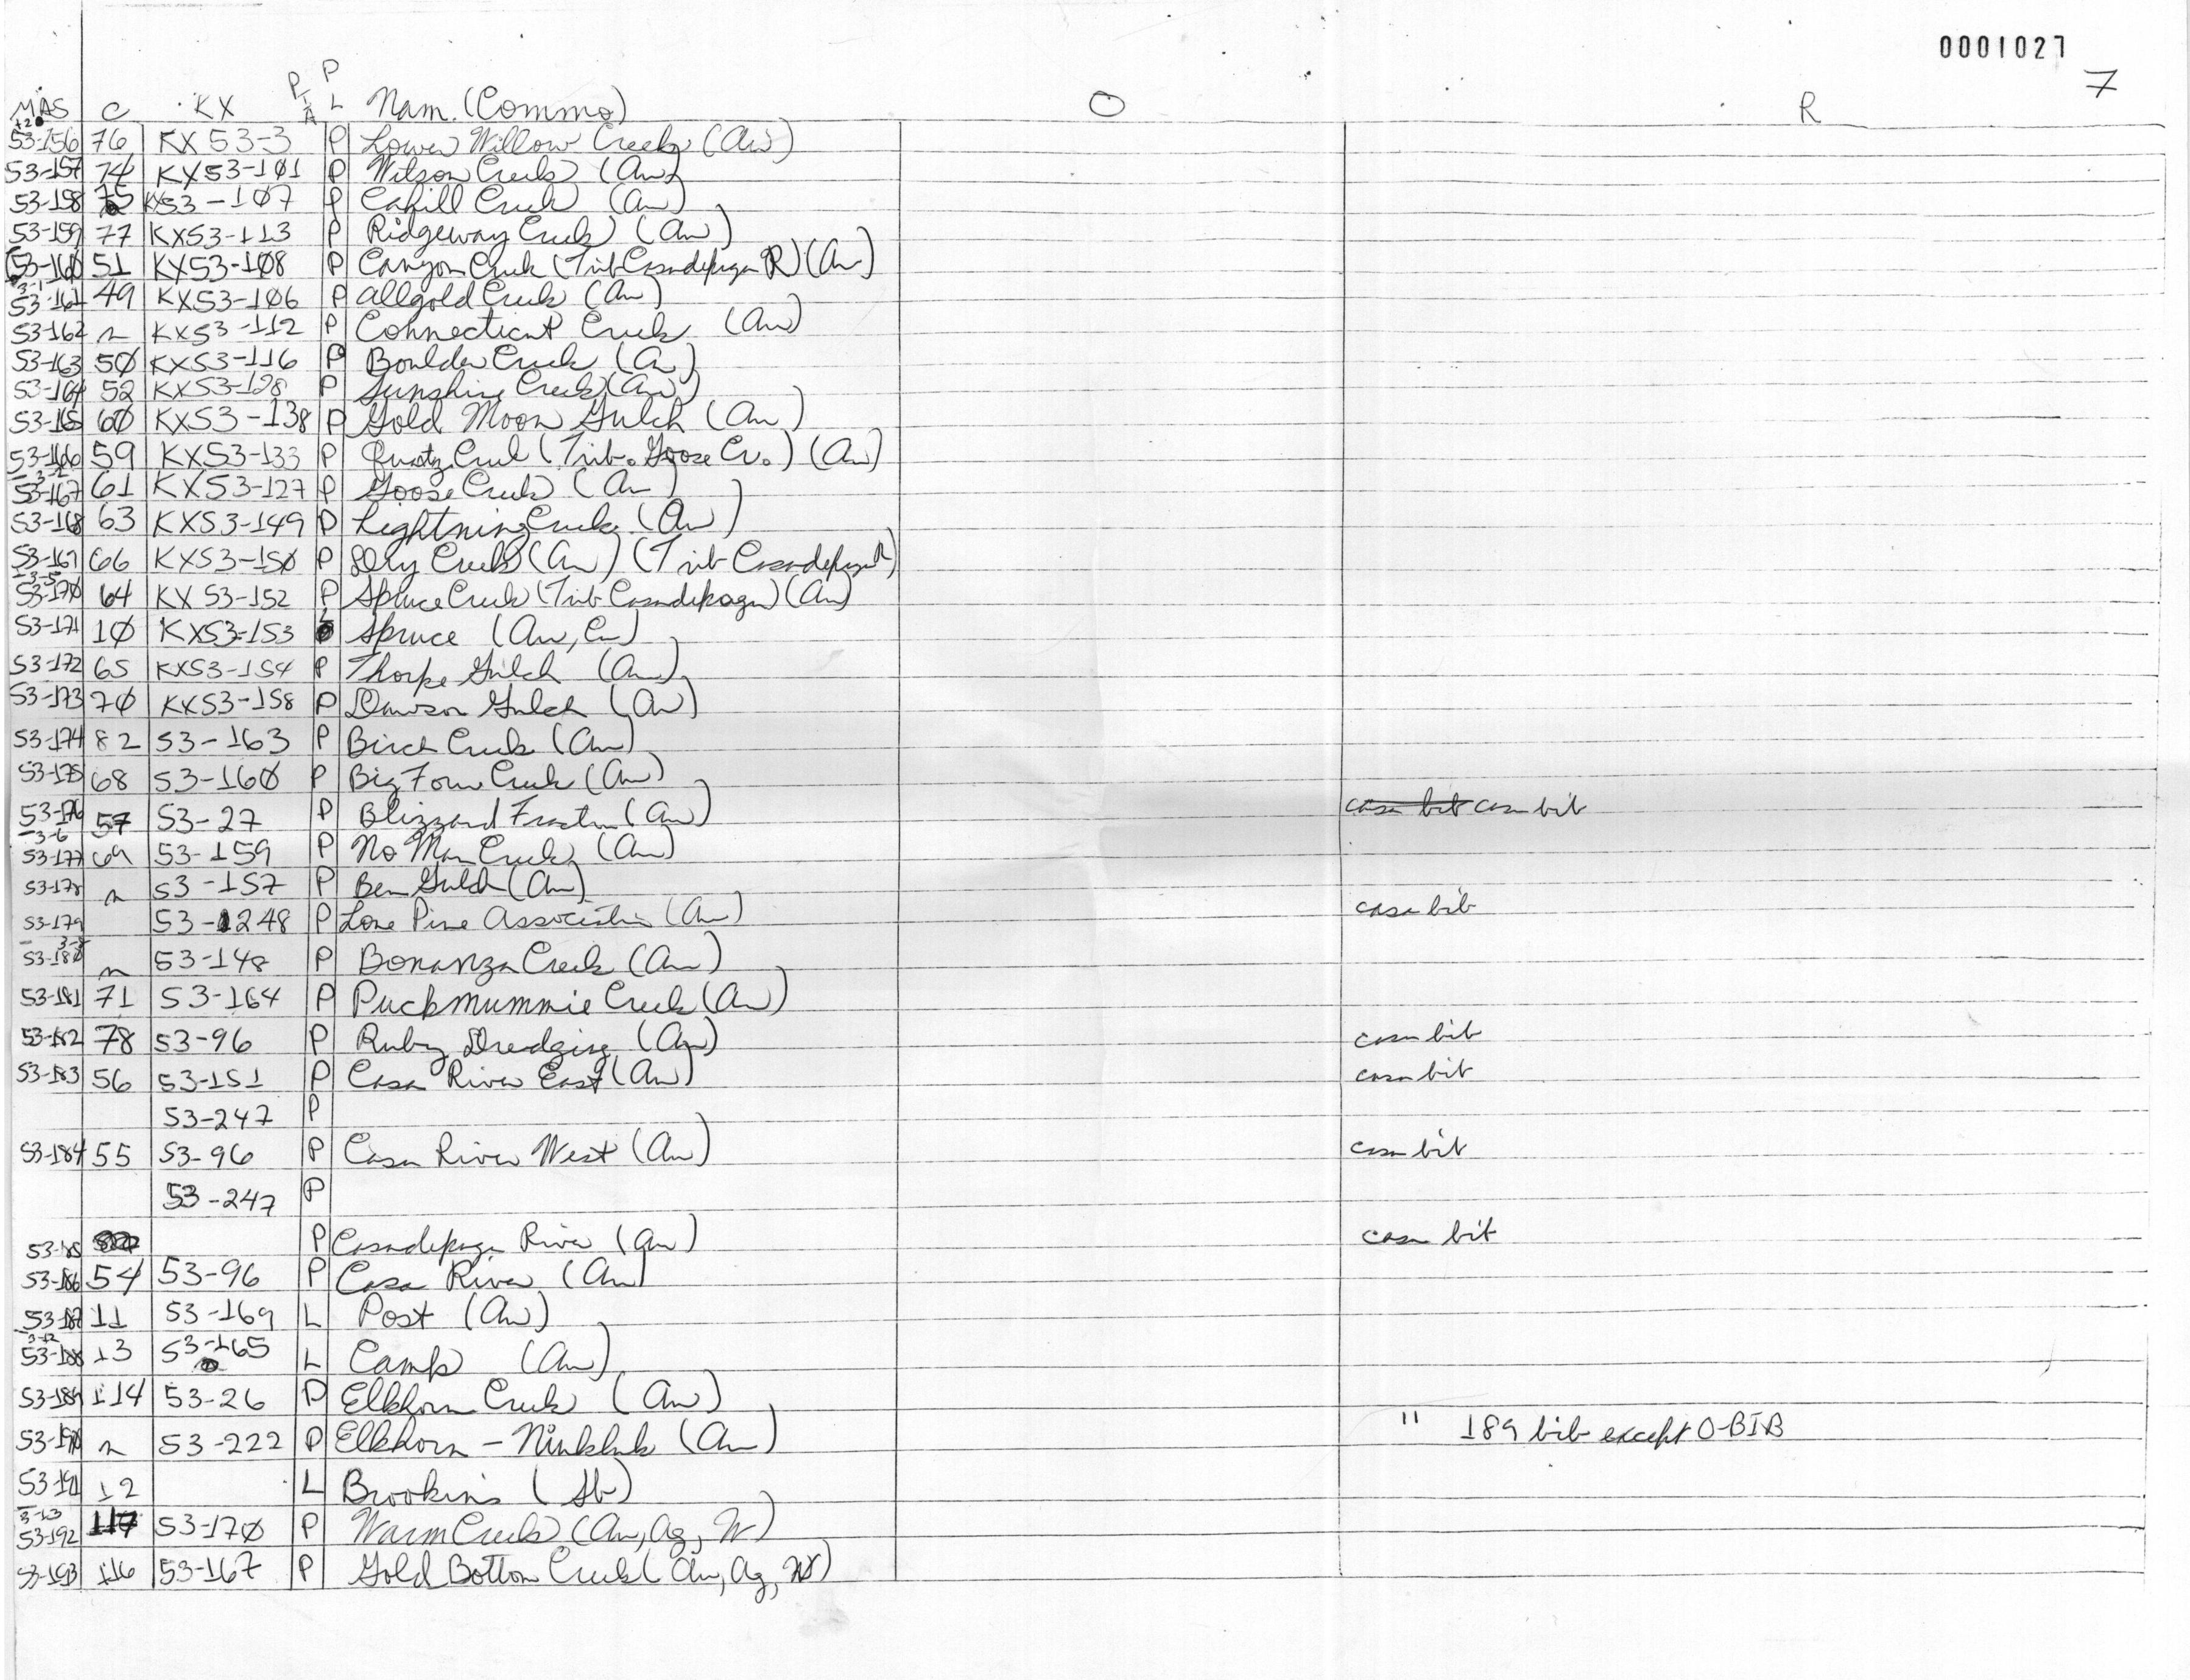 0001027
7
MAS C KX P I A P L Nam. (Commo) O R
53-156 76 KX 53-3 P Lower Willow Creek (Au)
53-157 74 KX53-1Ø1 P Wilson Creek (Au)
53-158 75 KX53-1Ø7 P Cahill Creek (Au)
53-159 77 KX53-113 P Ridgeway Creek (Au)
53-16Ø 51 KX53-1Ø8 P Canyon Creek (Trib Casadepaga R) (Au)
53-161 49 KX53-1Ø6 P Allgold Creek (Au)
53-162 n KX53-112 P Connecticut Creek (Au)
53-163 5Ø KX53-116 P Boulder Creek (Au)
53-164 52 KX53-128 P Sunshine Creek (Au)
53-165 6Ø KX53-138 P Gold Moon Gulch (Au)
53-166 59 KX53-133 P Quartz Creek (Trib. Goose Cr.) (Au)
53-167 61 KX53-127 P Goose Creek (Au)
53-168 63 KX53-149 P Lightning Creek (Au)
53-169 66 KX53-15Ø P Dry Creek (Au) (Trib Casadepaga R)
53-17Ø 64 KX 53-152 P Spruce Creek (Trib Casadepaga) (Au)
53-171 1Ø KX53-153 Spruce (Au, Cu)
53-172 65 KX53-154 P Thorpe Gulch (Au)
53-173 7Ø KX53-158 P Dawson Gulch (Au)
53-174 82 53-163 P Birch Creek (Au)
53-175 68 53-16Ø P Big Four Creek (Au)
53-176 57 53-27 P Blizzard Fraction (Au) casa bib casa bib
53-177 69 53-159 P No Man Creek (Au)
53-178 n 53-157 P Ben Gulch (Au)
53-179 53-248 P Lone Pine Association (Au) casa bib
53-18Ø n 53-148 P Bonanza Creek (Au)
53-181 71 53-164 P Puckmummie Creek (Au)
53-182 78 53-96 P Ruby Dredging (Au) casa bib
53-183 56 53-151 P Casa River East (Au) casa bib
53-247 P
53-184 55 53-96 P Casa River West (Au) casa bib
53-247 P
53-185 P Casadepaga River (Au) casa bib
53-186 54 53-96 P Casa River (Au)
53-187 11 53-169 L Post (Au)
53-188 13 53-165 L Camp (Au)
53-189 114 53-26 P Elkhorn Creek (Au)
53-19Ø n 53-222 P Elkhorn - Niukluk (Au) " 189 bib except O-BIB
53-191 12 L Brookins (Sb)
53-192 117 53-17Ø P Warm Creek (Au, Ag, W)
53-193 116 53-167 P Gold Bottom Creek (Au, Ag, W)